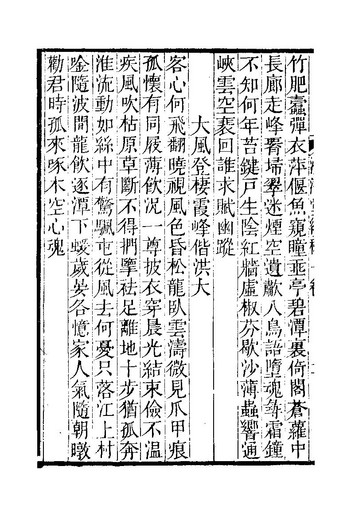 竹肥蠹彈衣萍偃魚窺瞳亜亭碧潭裏倚閣蒼蘿中
長廊走峰脊埽翠迷煙空遺獻人鳥詣墮魂每霜鐘
不知何年苔鍵戸生陰紅牆虛椒芬歇沙薄蟲響通
峽雲空裹回誰求賦幽蹤
大風登棲霞峰偕洪大
客心何飛翻曉視風色昏松龍臥雲濤微見爪甲痕
孤懷有同屐薄飲況一尊披衣穿晨光結束儉不溫
疾風吹枯原草斷不得捫擎袪足離地十步猶孤奔
淮流動如絲中有驚颿屯從風去何憂只落江上村
唫隨波間龍飲逐潭下蝯歲晏各憶家人氣隨朝暾
勸君時孤來啄木空心魂